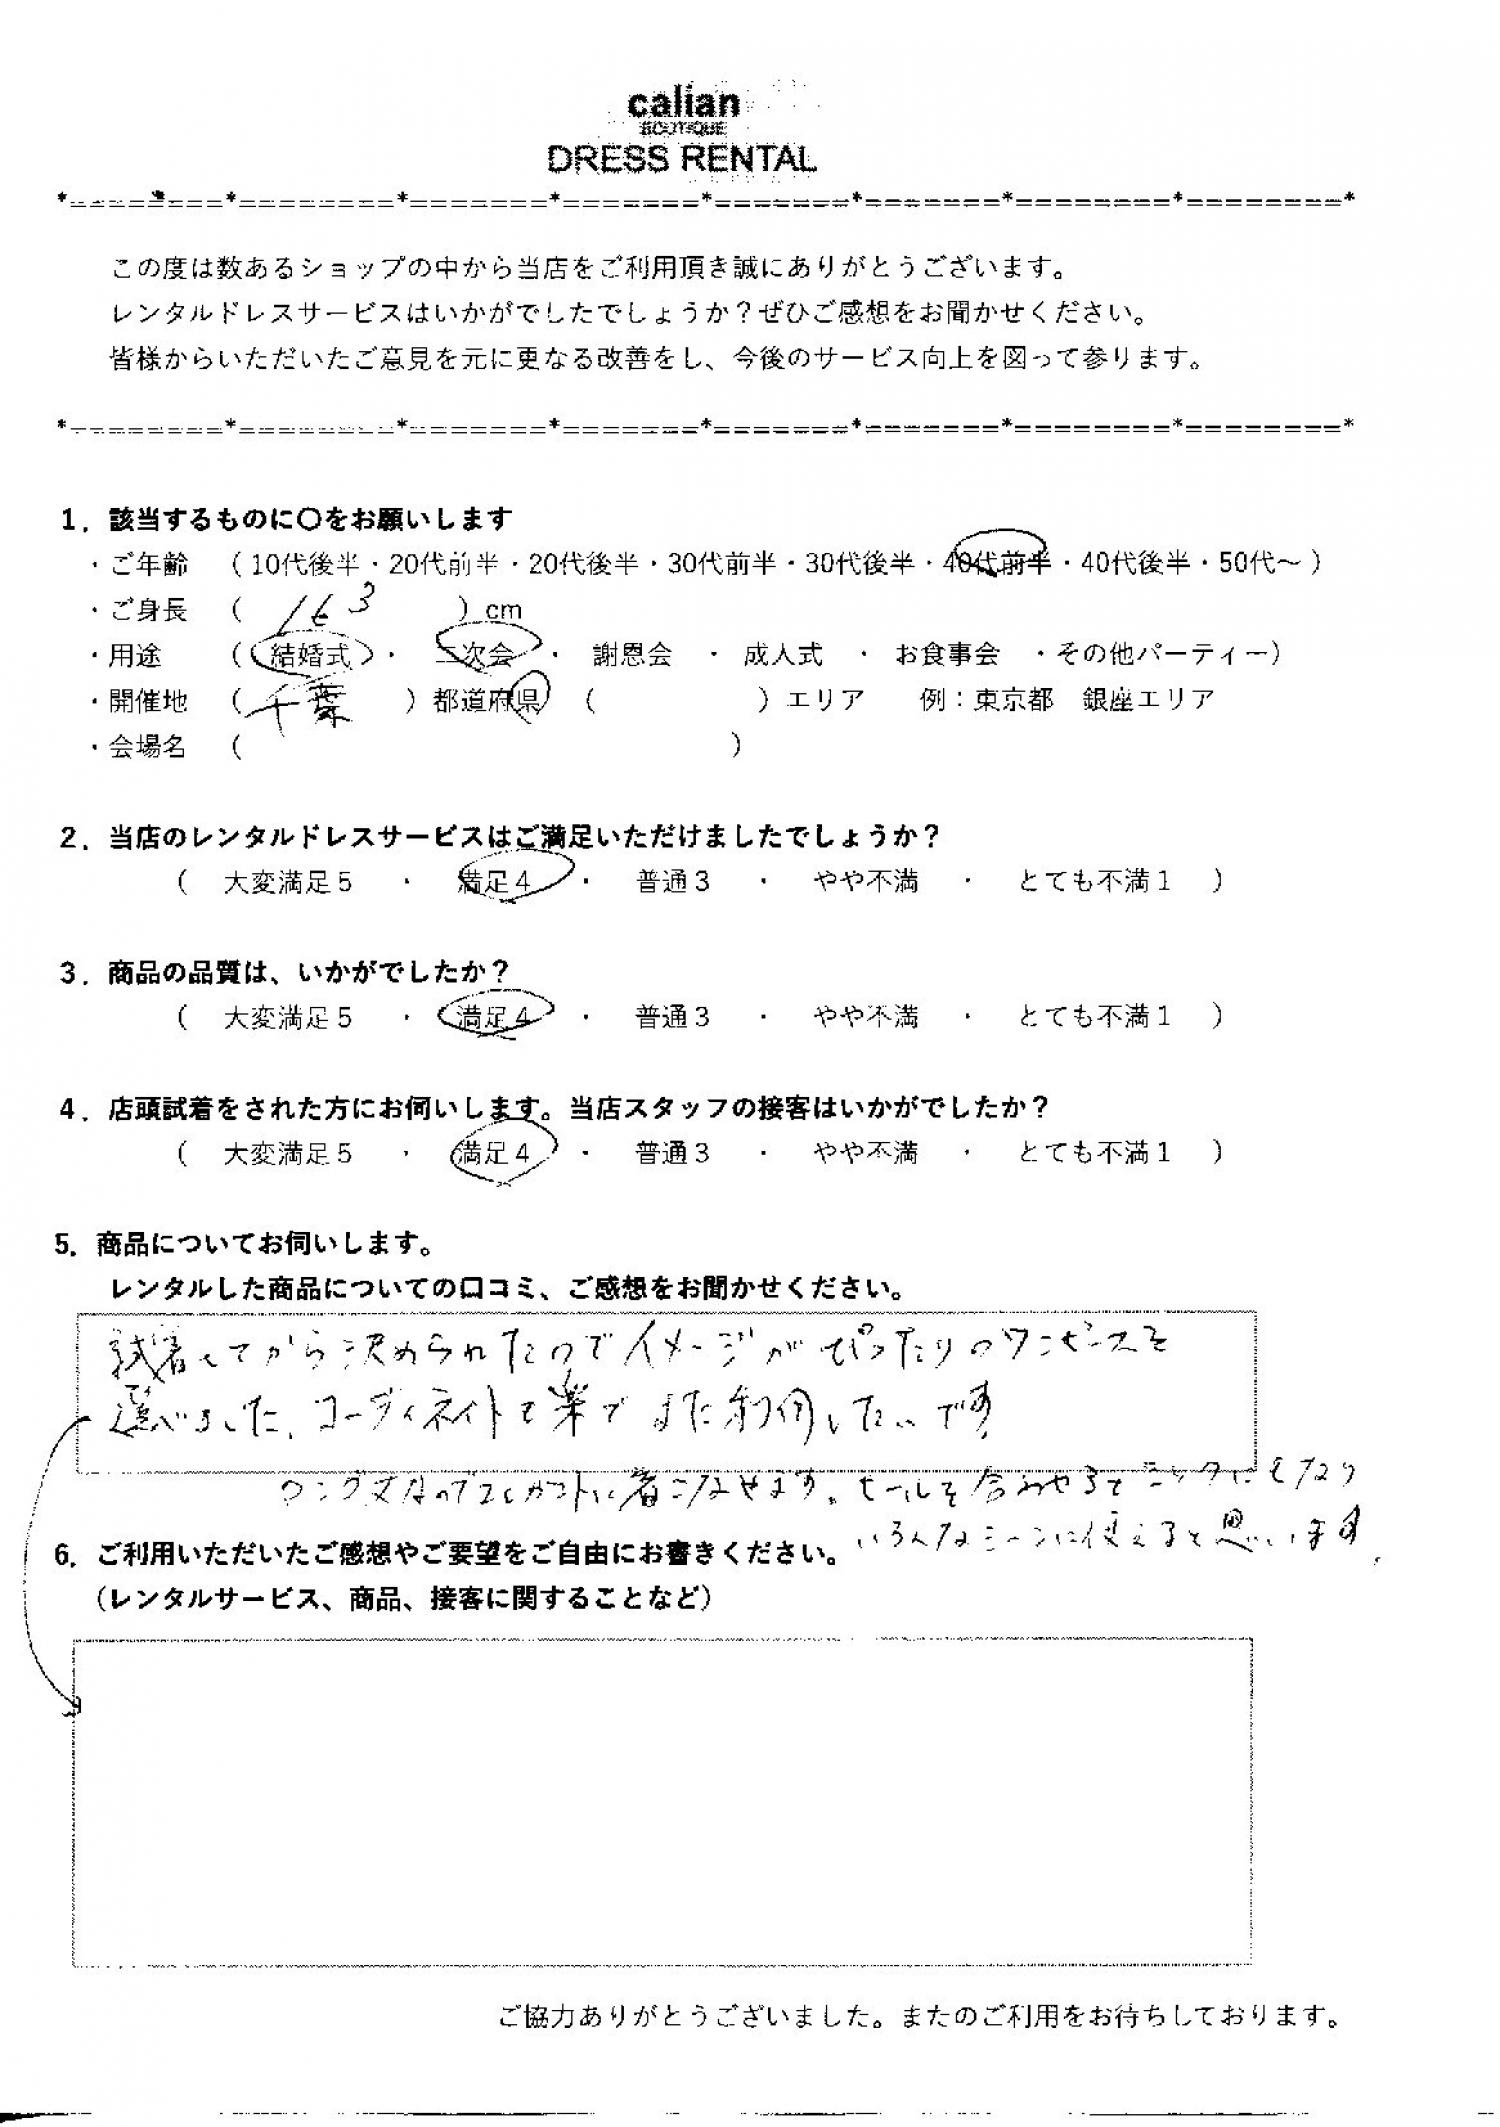 calian
BOUTIQUE
DRESS RENTAL
*========*========*=======*=======*=======*=======*========*========*
この度は数あるショップの中から当店をご利用頂き誠にありがとうございます。
レンタルドレスサービスはいかがでしたでしょうか？ぜひご感想をお聞かせください。
皆様からいただいたご意見を元に更なる改善をし、今後のサービス向上を図って参ります。
*========*========*=======*=======*=======*=======*========*========*
1．該当するものに〇をお願いします
・ご年齢 （ 10代後半・20代前半・20代後半・30代前半・30代後半・40代前半・40代後半・50代～ ）
・ご身長 （ 163 ）cm
・用途 （ 結婚式 ・ 二次会 ・ 謝恩会 ・ 成人式 ・ お食事会 ・その他パーティー）
・開催地 （ 千葉 ）都道府県 （ ）エリア 例：東京都 銀座エリア
・会場名 （ ）
2．当店のレンタルドレスサービスはご満足いただけましたでしょうか？
（ 大変満足5 ・ 満足4 ・ 普通3 ・ やや不満 ・ とても不満1 ）
3．商品の品質は、いかがでしたか？
（ 大変満足5 ・ 満足4 ・ 普通3 ・ やや不満 ・ とても不満1 ）
4．店頭試着をされた方にお伺いします。当店スタッフの接客はいかがでしたか？
（ 大変満足5 ・ 満足4 ・ 普通3 ・ やや不満 ・ とても不満1 ）
5．商品についてお伺いします。
レンタルした商品についての口コミ、ご感想をお聞かせください。
試着してから決められたのでイメージがぴったりのワンピースを
選べました。コーディネイトも楽でまた利用したいです
ロング丈なのでエレガントに着こなせます。ヒールを合わせるとシックにもなり
いろんなシーンに使えると思います。
6．ご利用いただいたご感想やご要望をご自由にお書きください。
（レンタルサービス、商品、接客に関することなど）
ご協力ありがとうございました。またのご利用をお待ちしております。